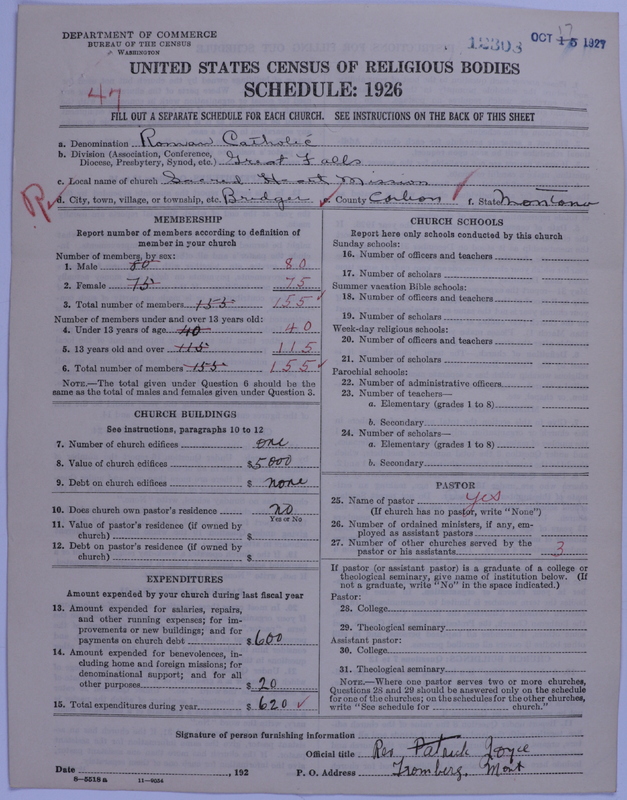 DEPARTMENT OF COMMERCE
BUREAU OF THE CENSUS
WASHINGTON
12303
OCT 15 1927
17
UNITED STATES CENSUS OF RELIGIOUS BODIES
SCHEDULE: 1926
47
FILL OUT A SEPARATE SCHEDULE FOR EACH CHURCH. SEE INSTRUCTIONS ON THE BACK OF THIS SHEET
a. Denomination Roman Catholic
b. Division (Association, Conference, Diocese, Presbytery, Synod, etc.) Great Falls
c. Local name of church Sacred Heart Mission
d. City, town, village, or township, etc. Bridger e. County Carbon f. State Montana
MEMBERSHIP
Report number of members according to definition of
member in your church
Number of members, by sex:
1. Male 80 80
2. Female 75 75
3. Total number of members 155 155
Number of members under and over 13 years old:
4. Under 13 years of age 40 40
5. 13 years old and over 115 115
6. Total number of members 155 155
NOTE.—The total given under Question 6 should be
same as the total of males and females given under Question 3.
CHURCH BUILDINGS
See instructions, paragraphs 10 to 12
7. Number of church edifices one
8. Value of church edifices $5000
9. Debt on church edifices $ none
10. Does church own pastor's residence no
Yes or No
11. Value of pastor's residence (if owned by
church) $
12. Debt on pastor's residence (if owned by
church) $
EXPENDITURES
Amount expended by your church during last fiscal year
13. Amount expended for salaries, repairs,
and other running expenses; for im-
provements or new buildings; and for
payments on church debt $600
14. Amount expended for benevolences, in-
cluding home and foreign missions; for
denominational support; and for all
other purposes $20
15. Total expenditures during year $620
CHURCH SCHOOLS
Report here only schools conducted by this church
Sunday schools:
16. Number of officers and teachers
17. Number of scholars
Summer vacation Bible schools:
18. Number of officers and teachers
19. Number of scholars
Week-day religious schools:
20. Number of officers and teachers
21. Number of scholars
Parochial schools:
22. Number of administrative officers
23. Number of teachers—
a. Elementary (grades 1 to 8)
b. Secondary
24. Number of scholars—
a. Elementary (grades 1 to 8)
b. Secondary
PASTOR
25. Name of pastor yes
(If church has no pastor, write "None")
26. Number of ordained ministers, if any, em-
ployed as assistant pastors
27. Number of other churches served by the
pastor or his assistants 3
If pastor (or assistant pastor) is a graduate of a college or
theological seminary, give name of institution below. (If
not a graduate, write "No" in the space indicated.)
Pastor:
28. College
29. Theological seminary
Assistant pastor:
30. College
31. Theological seminary
NOTE.—Where one pastor serves two or more churches,
Questions 28 and 29 should be answered only on the schedule
for one of the churches; on the schedules for the other churches,
write "See schedule for church."
Signature of person furnishing information
Official title Rev Patrick Joyce
Date , 192 P. O. Address Fromberg, Mont
8—5518a 11—9054